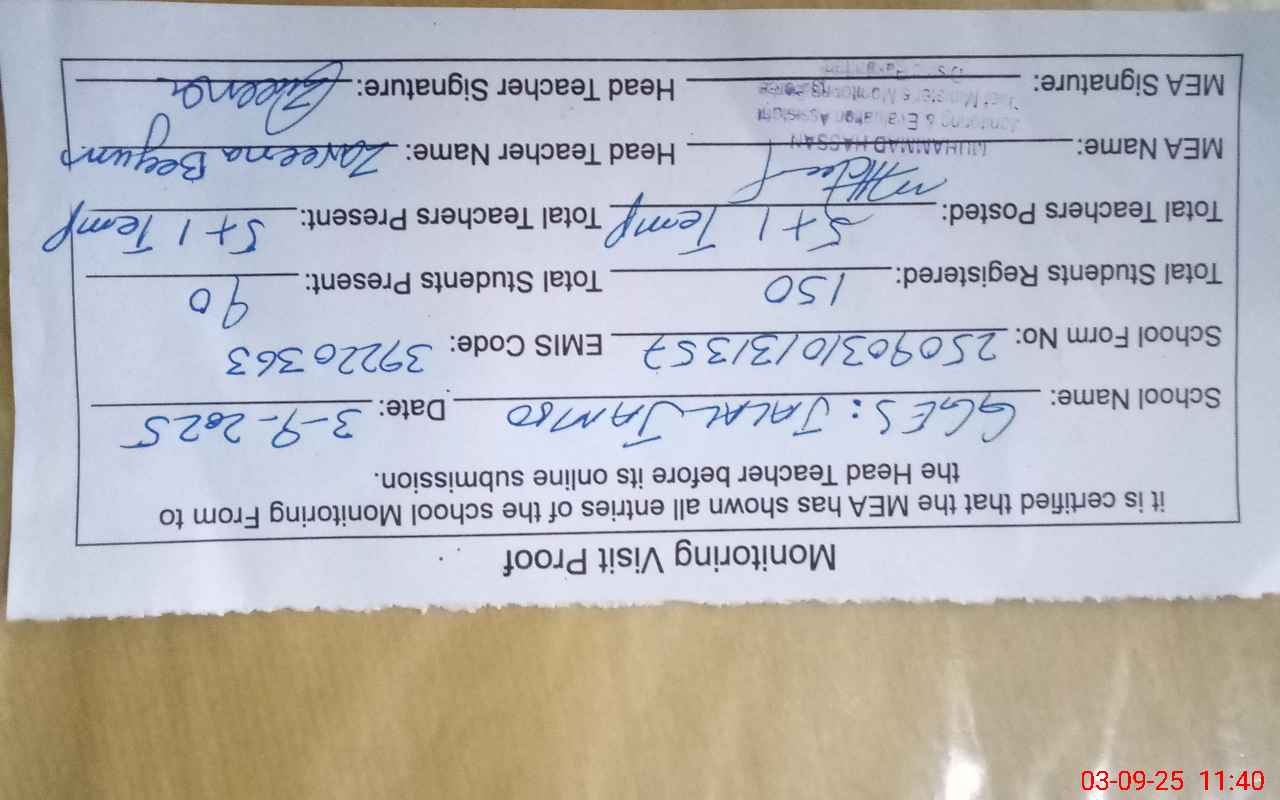 Monitoring Visit Proof
it is certified that the MEA has shown all entries of the school Monitoring From to
the Head Teacher before its online submission.
School Name: GGES: JALAL JAMOO Date: 3-9-2025
School Form No: 25090310131357 EMIS Code: 39220363
Total Students Registered: 150 Total Students Present: 90
Total Teachers Posted: 5+1 Temp Total Teachers Present: 5+1 Temp
MEA Name: MUHAMMAD HASSAN Head Teacher Name: Zareena Begum
Monitoring & Evaluation Assistant
Chief Minister's Monitoring Force
MEA Signature: Head Teacher Signature: Zareena
03-09-25 11:40